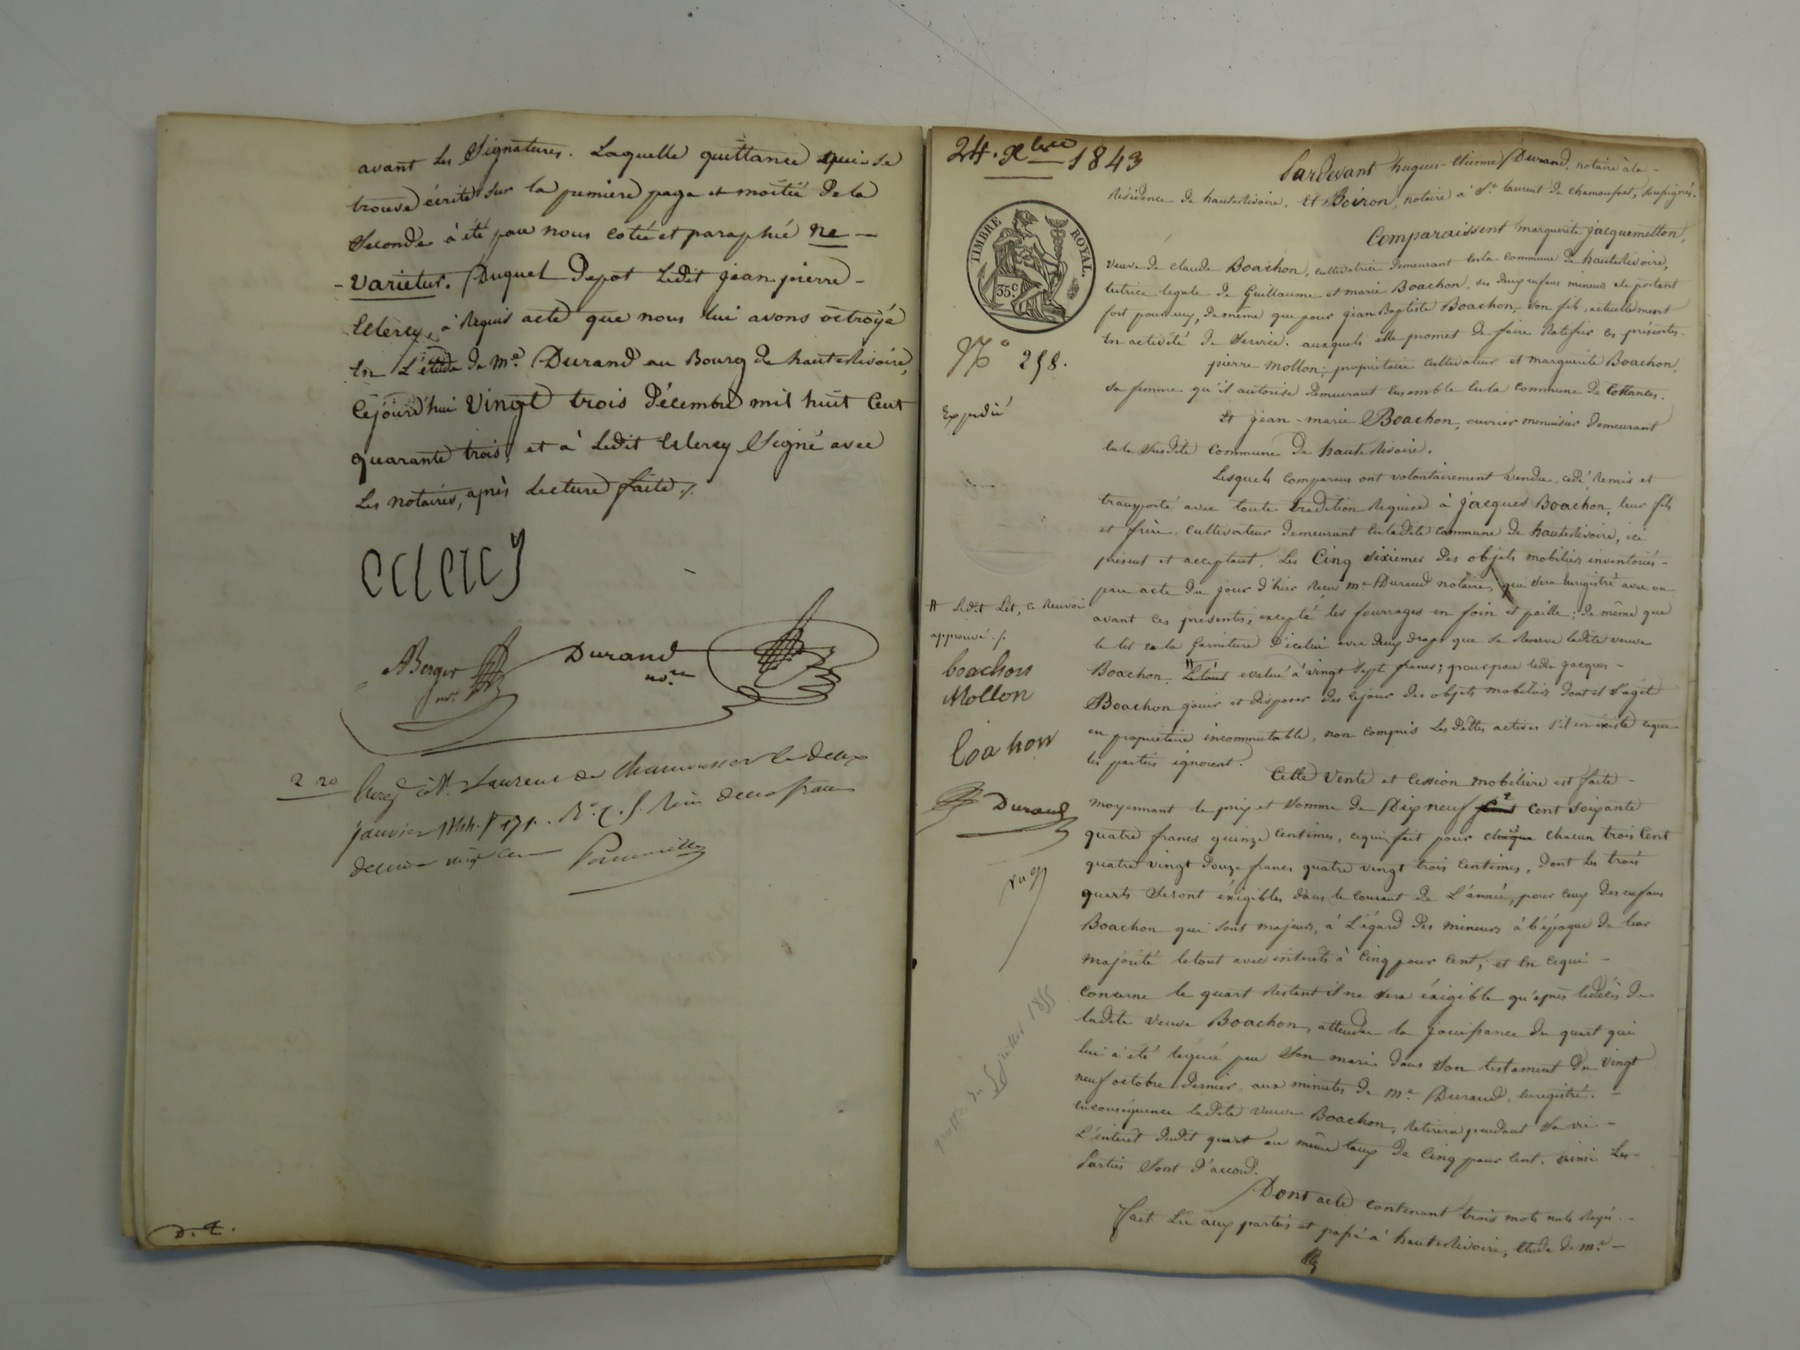 avant les signatures. Laquelle quittance qui se
trouve écrite sur la première page et moitié de la
seconde a été par nous cotée et paraphée ne —
- varietur. Duquel depot ledit jean pierre -
Eclercy, a requis acte que nous lui avons octroyé
En L'étude de me. Durand au Bourg de hauterivoire,
cejourd'hui vingt trois Décembre mil huit Cent
quarante trois, et a ledit Eclercy signé avec
les notaires, après lecture faite /.
eclercy
ABerger
nre.
Durand
nore
2 20
Enreg. à St. Laurent de Chamousset le deux
janvier 1844. fo 171. Ro. C. 5. Reçu deux francs
décime vingt cen
D. E.
24. Xbre 1843
TIMBRE ROYAL.
35 c
No 258.
Expédié
# ledit Lit, ce renvoi
approuvé ./.
boachon
Mollon
boahon
Durand
Pardevant hugues-Etienne Durand, notaire à la -
Résidence de hauterivoire, Et Boiron, notaire à St. laurent de chamousset, soussignés.
Comparaissent marguerite jacquemetton,
veuve de claude Boachon, cultivatrice demeurant en la commune de hauterivoire,
tutrice légale de Guillaume et marie Boachon, ses deux enfans mineurs et se portant
fort pour eux, de même que pour jean Baptiste Boachon, son fils, actuellement
En activité de service. auxquels elle promet de faire Ratifier ces présentes.
pierre Mollon, propriétaire cultivateur et marguerite Boachon,
sa femme qu'il autorise demeurant ensemble en la commune de Cottance.
Et jean-marie Boachon, ouvrier menuisier demeurant
En la susdite commune de hauterivoire.
Lesquels comparans ont volontairement vendu, cédé, remis et
transporté avec toute tradition Requise à jacques Boachon, leur fils
et frère, cultivateur demeurant en ladite commune de hauterivoire, ici
présent et acceptant, Les Cinq sixièmes des objets mobiliers inventoriés -
par acte du jour d'hier Reçu me Durand notaire, qui sera Enregistré avec ou
avant ces présentes, excepté les fourrages en foin et paille; de même que
le lit et la garniture d'icelui avec deux draps que se réserve ladite veuve
Boachon, # Le tout évalué à vingt sept francs; pour par ledit jacques -
Boachon jouir et disposer dès cejour des objets mobiliers dont il s'agit
en propriétaire incommutable, non compris les dettes actives s'il en existe ce que
les parties ignorent.
Cette vente et cession mobilière est faite -
moyennant le prix et somme de Dix neuf cent soixante
quatre francs quinze centimes, ce qui fait pour chaque chacun trois Cent
quatre vingt douze francs quatre vingt trois centimes, dont les trois
quarts seront éxigibles dans le courant de L'année, pour ceux des enfans
Boachon qui sont majeurs, à L'égard des mineurs à l'époque de leur
majorité le tout avec intérêts à cinq pour cent; et En ce qui -
concerne le quart restant il ne sera éxigible qu'après le décès de
ladite veuve Boachon, attendu la jouissance du quart qui
lui a été légué par son mari dans son testament du vingt
neuf octobre dernier, aux minutes de me Durand, Enregistré. -
En conséquence ladite veuve Boachon, retirera pendant sa vie -
L'intérêt dudit quart au même taux de cinq pour cent. ainsi Les -
Parties sont d'accord.
Dont acte contenant trois mots nuls rayés. -
Fait Lu aux parties et passé à hauterivoire, étude de me -